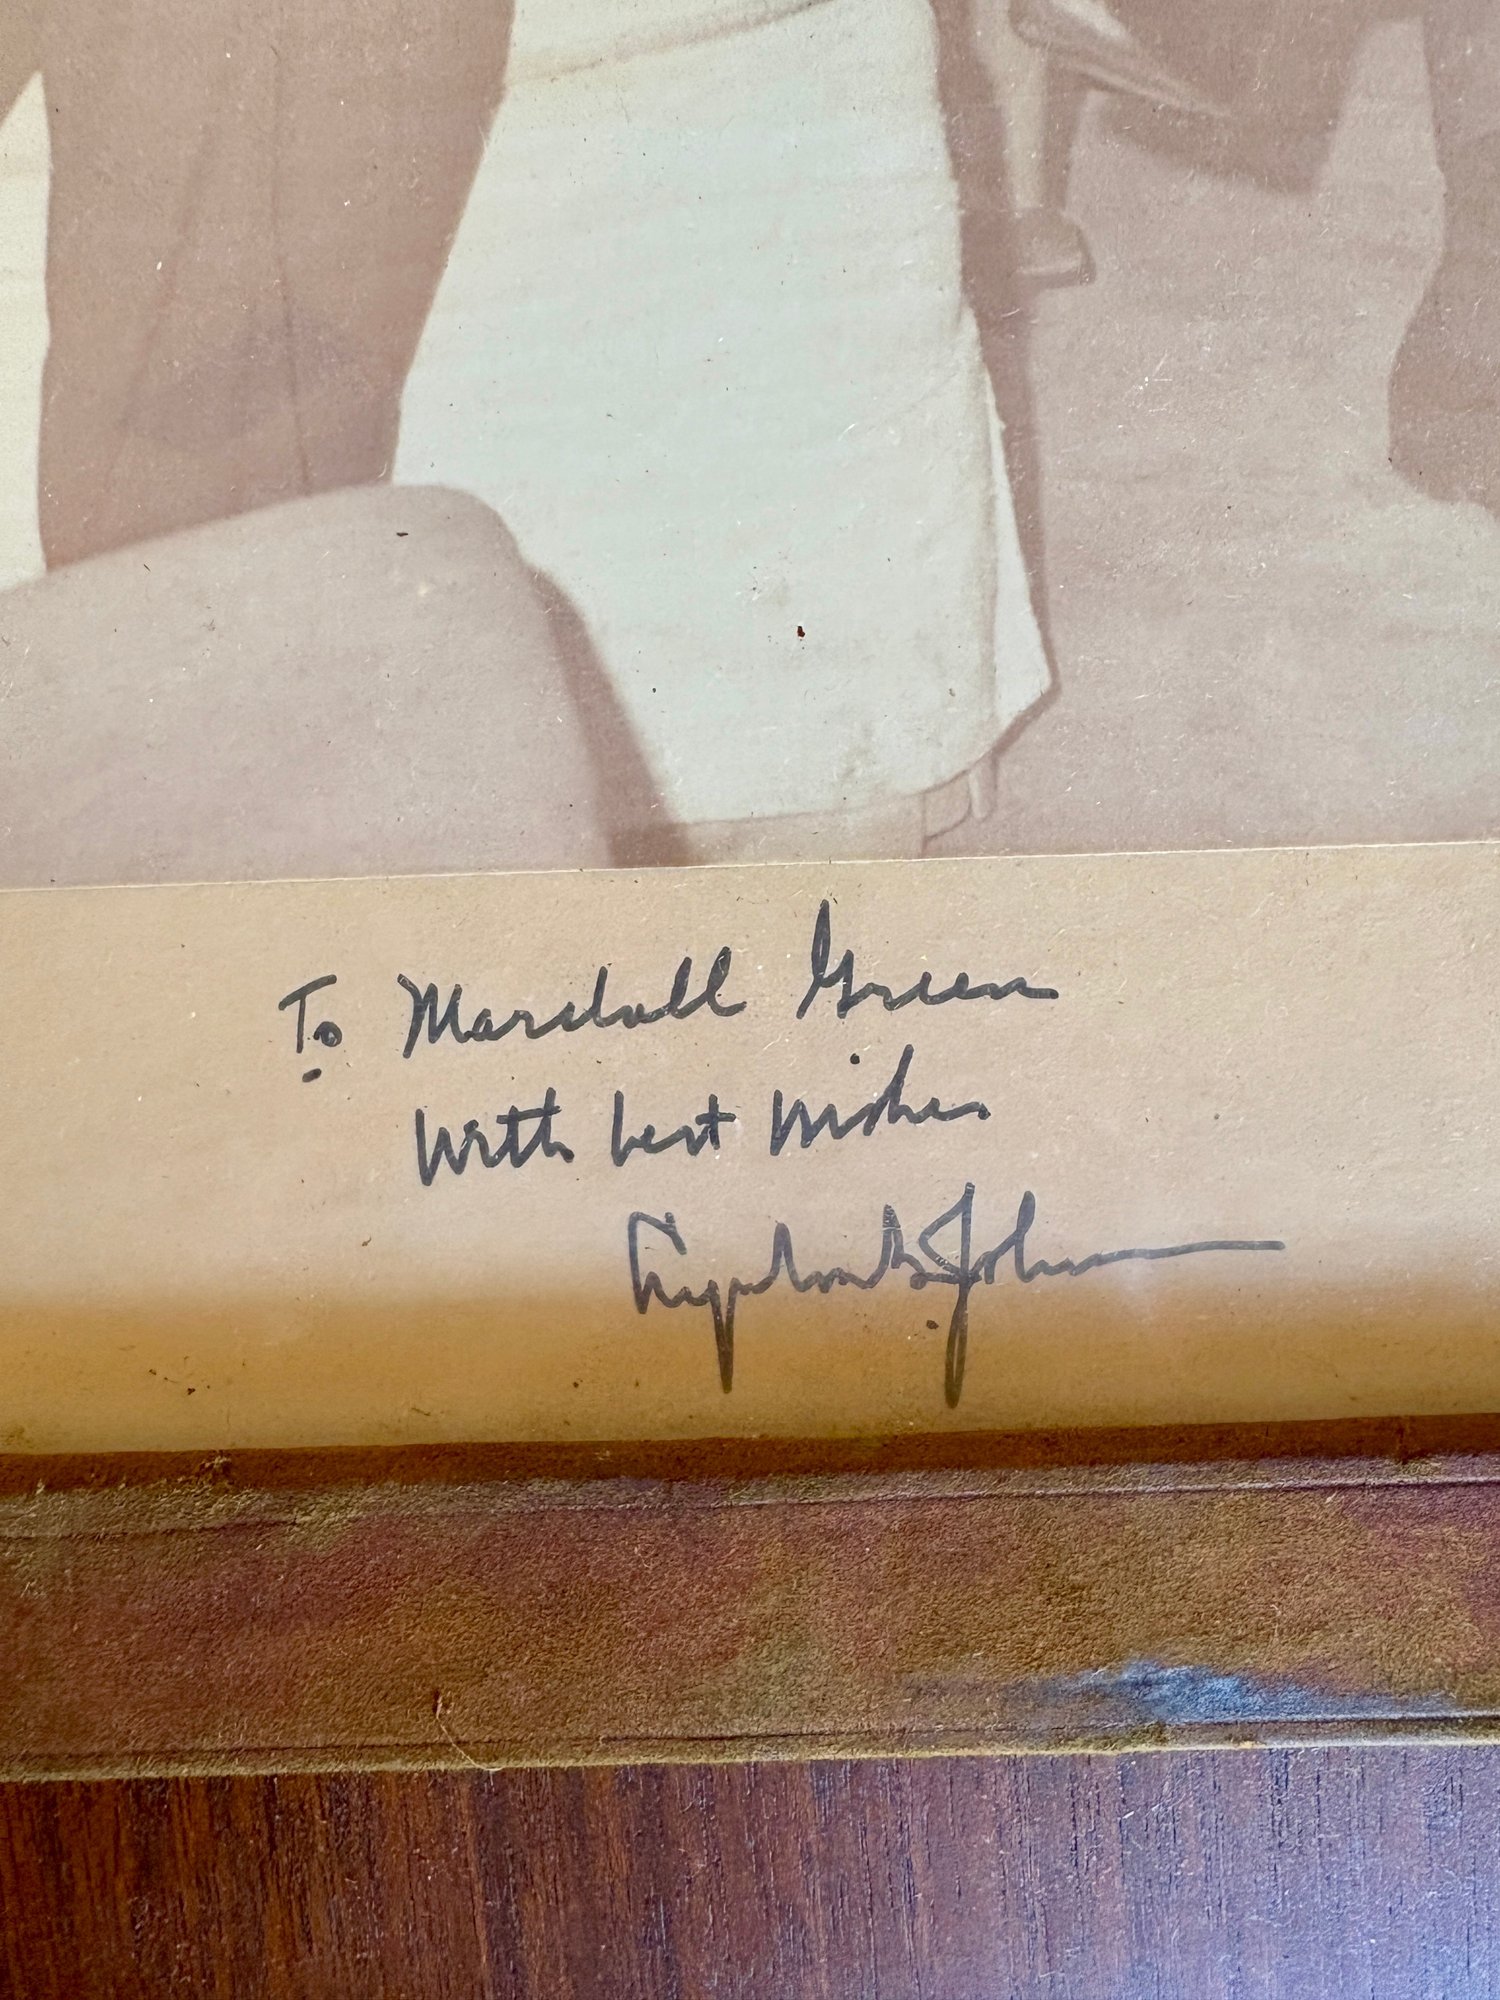 To Marshall Green
With best wishes
Lyndon B. Johnson